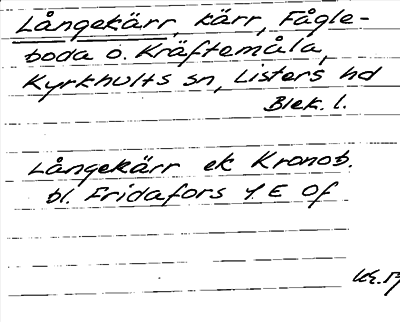 Långekärr, kärr, Fågle-
boda o. Kräftemåla,
Kyrkhults sn, Listers hd
Blek. l.
Långekärr ek Kronob.
bl. Fridafors 4 E Of